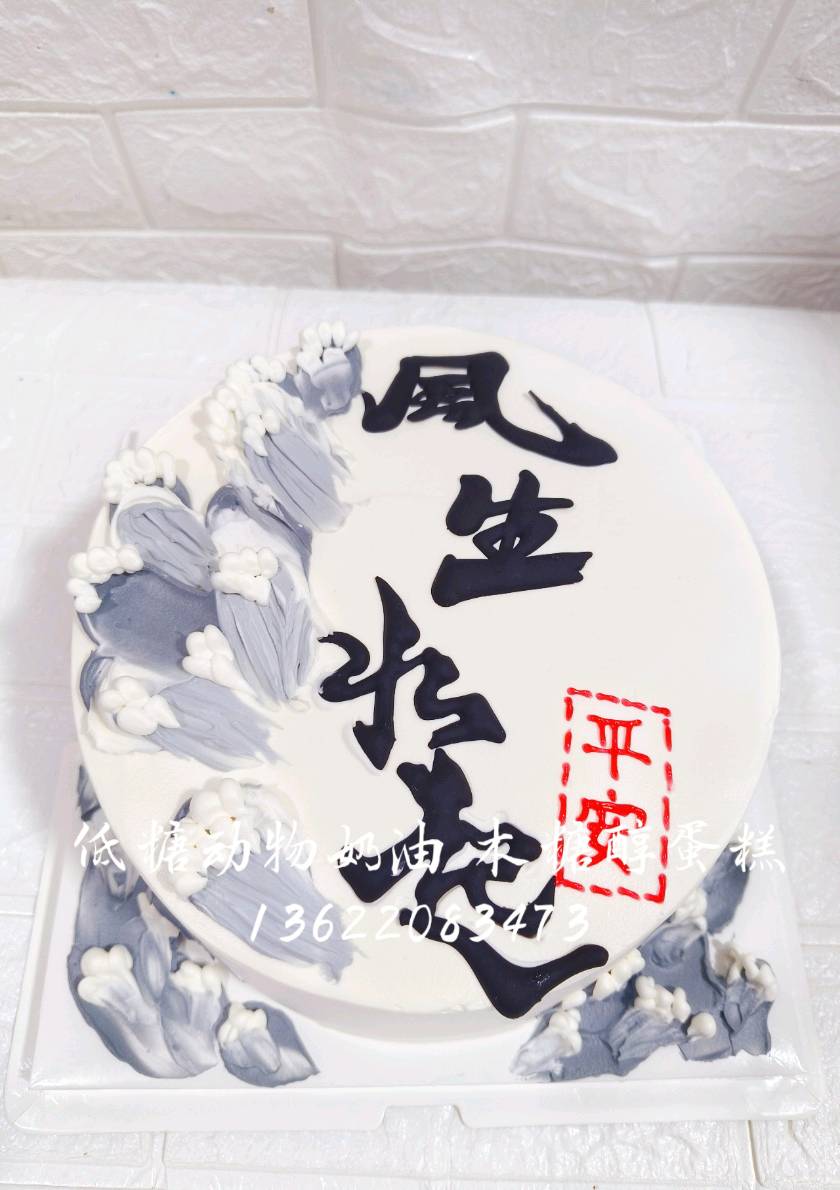 風
生
水
起
平
安
低糖动物奶油 木糖醇蛋糕
13622083473